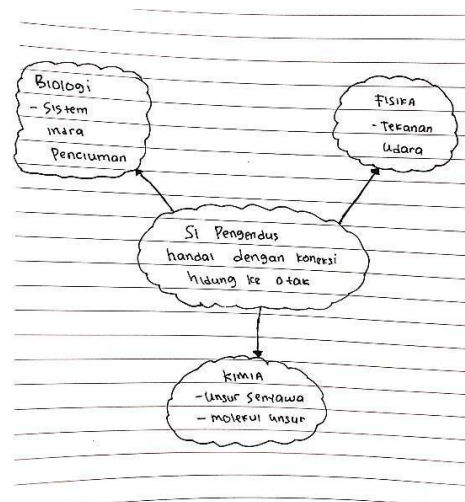 Biologi
- Sistem
indra
Penciuman
FISIKA
- Tekanan
Udara
SI Pengendus
handal dengan koneksi
hidung ke otak
KIMIA
- Unsur Senyawa
- molekul unsur